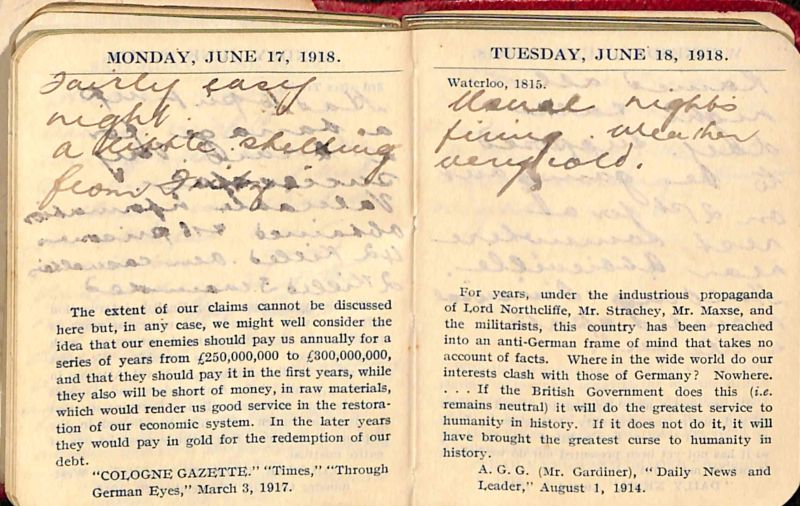 MONDAY, JUNE 17, 1918.
Fairly easy
night.
a little shelling
from Fritz
The extent of our claims cannot be discussed
here but, in any case, we might well consider the
idea that our enemies should pay us annually for a
series of years from £250,000,000 to £300,000,000,
and that they should pay it in the first years, while
they also will be short of money, in raw materials,
which would render us good service in the restora-
tion of our economic system. In the later years
they would pay in gold for the redemption of our
debt.
"COLOGNE GAZETTE." "Times," "Through
German Eyes," March 3, 1917.
TUESDAY, JUNE 18, 1918.
Waterloo, 1815.
Usual nights
firing. Weather
very cold.
For years, under the industrious propaganda
of Lord Northcliffe, Mr. Strachey, Mr. Maxse, and
the militarists, this country has been preached
into an anti-German frame of mind that takes no
account of facts. Where in the wide world do our
interests clash with those of Germany? Nowhere.
. . . If the British Government does this (i.e.
remains neutral) it will do the greatest service to
humanity in history. If it does not do it, it will
have brought the greatest curse to humanity in
history.
A. G. G. (Mr. Gardiner), "Daily News and
Leader," August 1, 1914.